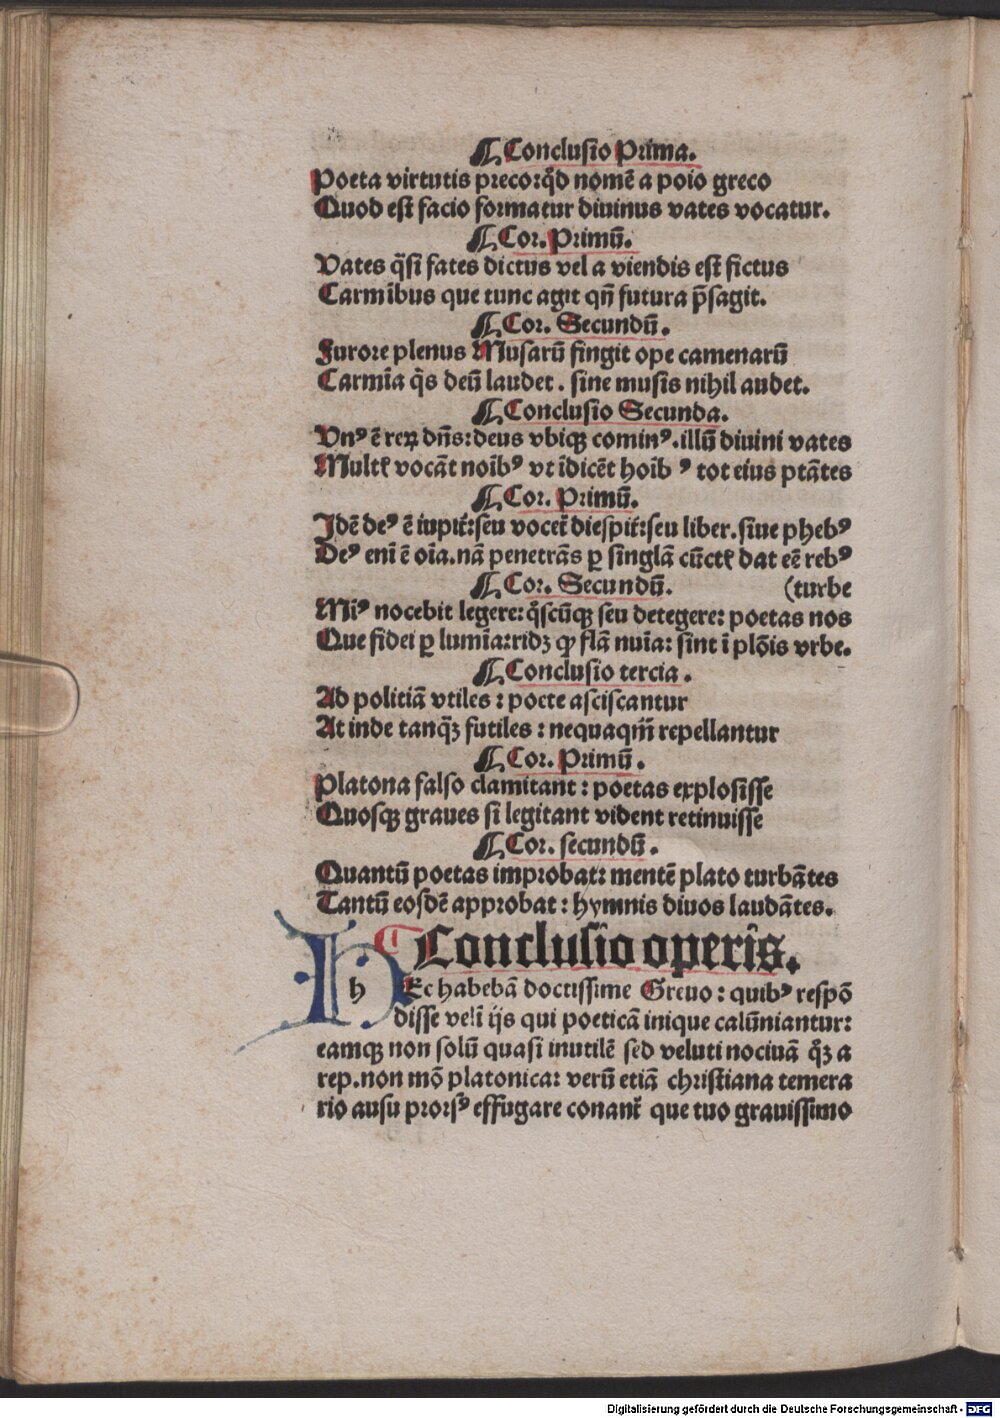 ¶ Conclusio Prima.
Poeta virtutis precor qđ nomē a poio greco
Quod est facio formatur diuinus vates vocatur.
¶ Cor. Primū.
Vates q̄si fates dictus vel a viendis est fictus
Carmībus que tunc agit qn̄ futura p̄sagit.
¶ Cor. Secundū.
Furore plenus Musarū fingit ope camenarū
Carmīa q̄s deū laudet. sine musis nihil audet.
¶ Conclusio Secunda.
Vnꝰ ē reꝝ dn̄s: deus vbiqꝫ cominꝰ. illū diuini vates
Multꝭ vocāt noībꝰ vt īdicēt hoībꝰ tot eius ptātes
¶ Cor. Primū.
Idē deꝰ ē iupit̄: seu vocet̄ diespit̄: seu liber. siue phebꝰ
Deꝰ eni ē oīa. nā penetrās ꝑ singlā cūctꝭ dat eē rebꝰ
¶ Cor. Secundū. (turbe
Miꝰ nocebit legere: q̄scūqꝫ seu detegere: poetas nos
Que fidei ꝑ lumīa: ridꝫ ꝙ flā nuīa: sint ī plōis vrbe.
¶ Conclusio tercia.
Ad politiā vtiles: poete asciscantur
At inde tanq̄ꝫ futiles: nequaqm̄ repellantur
¶ Cor. Primū.
Platona falso clamitant: poetas explosisse
Quosqꝫ graues si legitant vident retinuisse
¶ Cor. secundū.
Quantū poetas improbat: mentē plato turbātes
Tantū eosdē approbat: hymnis diuos laudātes.
¶ Conclusio operis.
hEc habebā doctissime Greuo: quibꝰ respō
disse veli ijs qui poeticā inique calūniantur:
eamqꝫ non solū quasi inutilē sed veluti nociuā q̄ꝫ a
rep. non mō platonica: verū etiā christiana temera
rio ausu prorsꝰ effugare conant̄ que tuo grauissimo
Digitalisierung gefördert durch die Deutsche Forschungsgemeinschaft - DFG